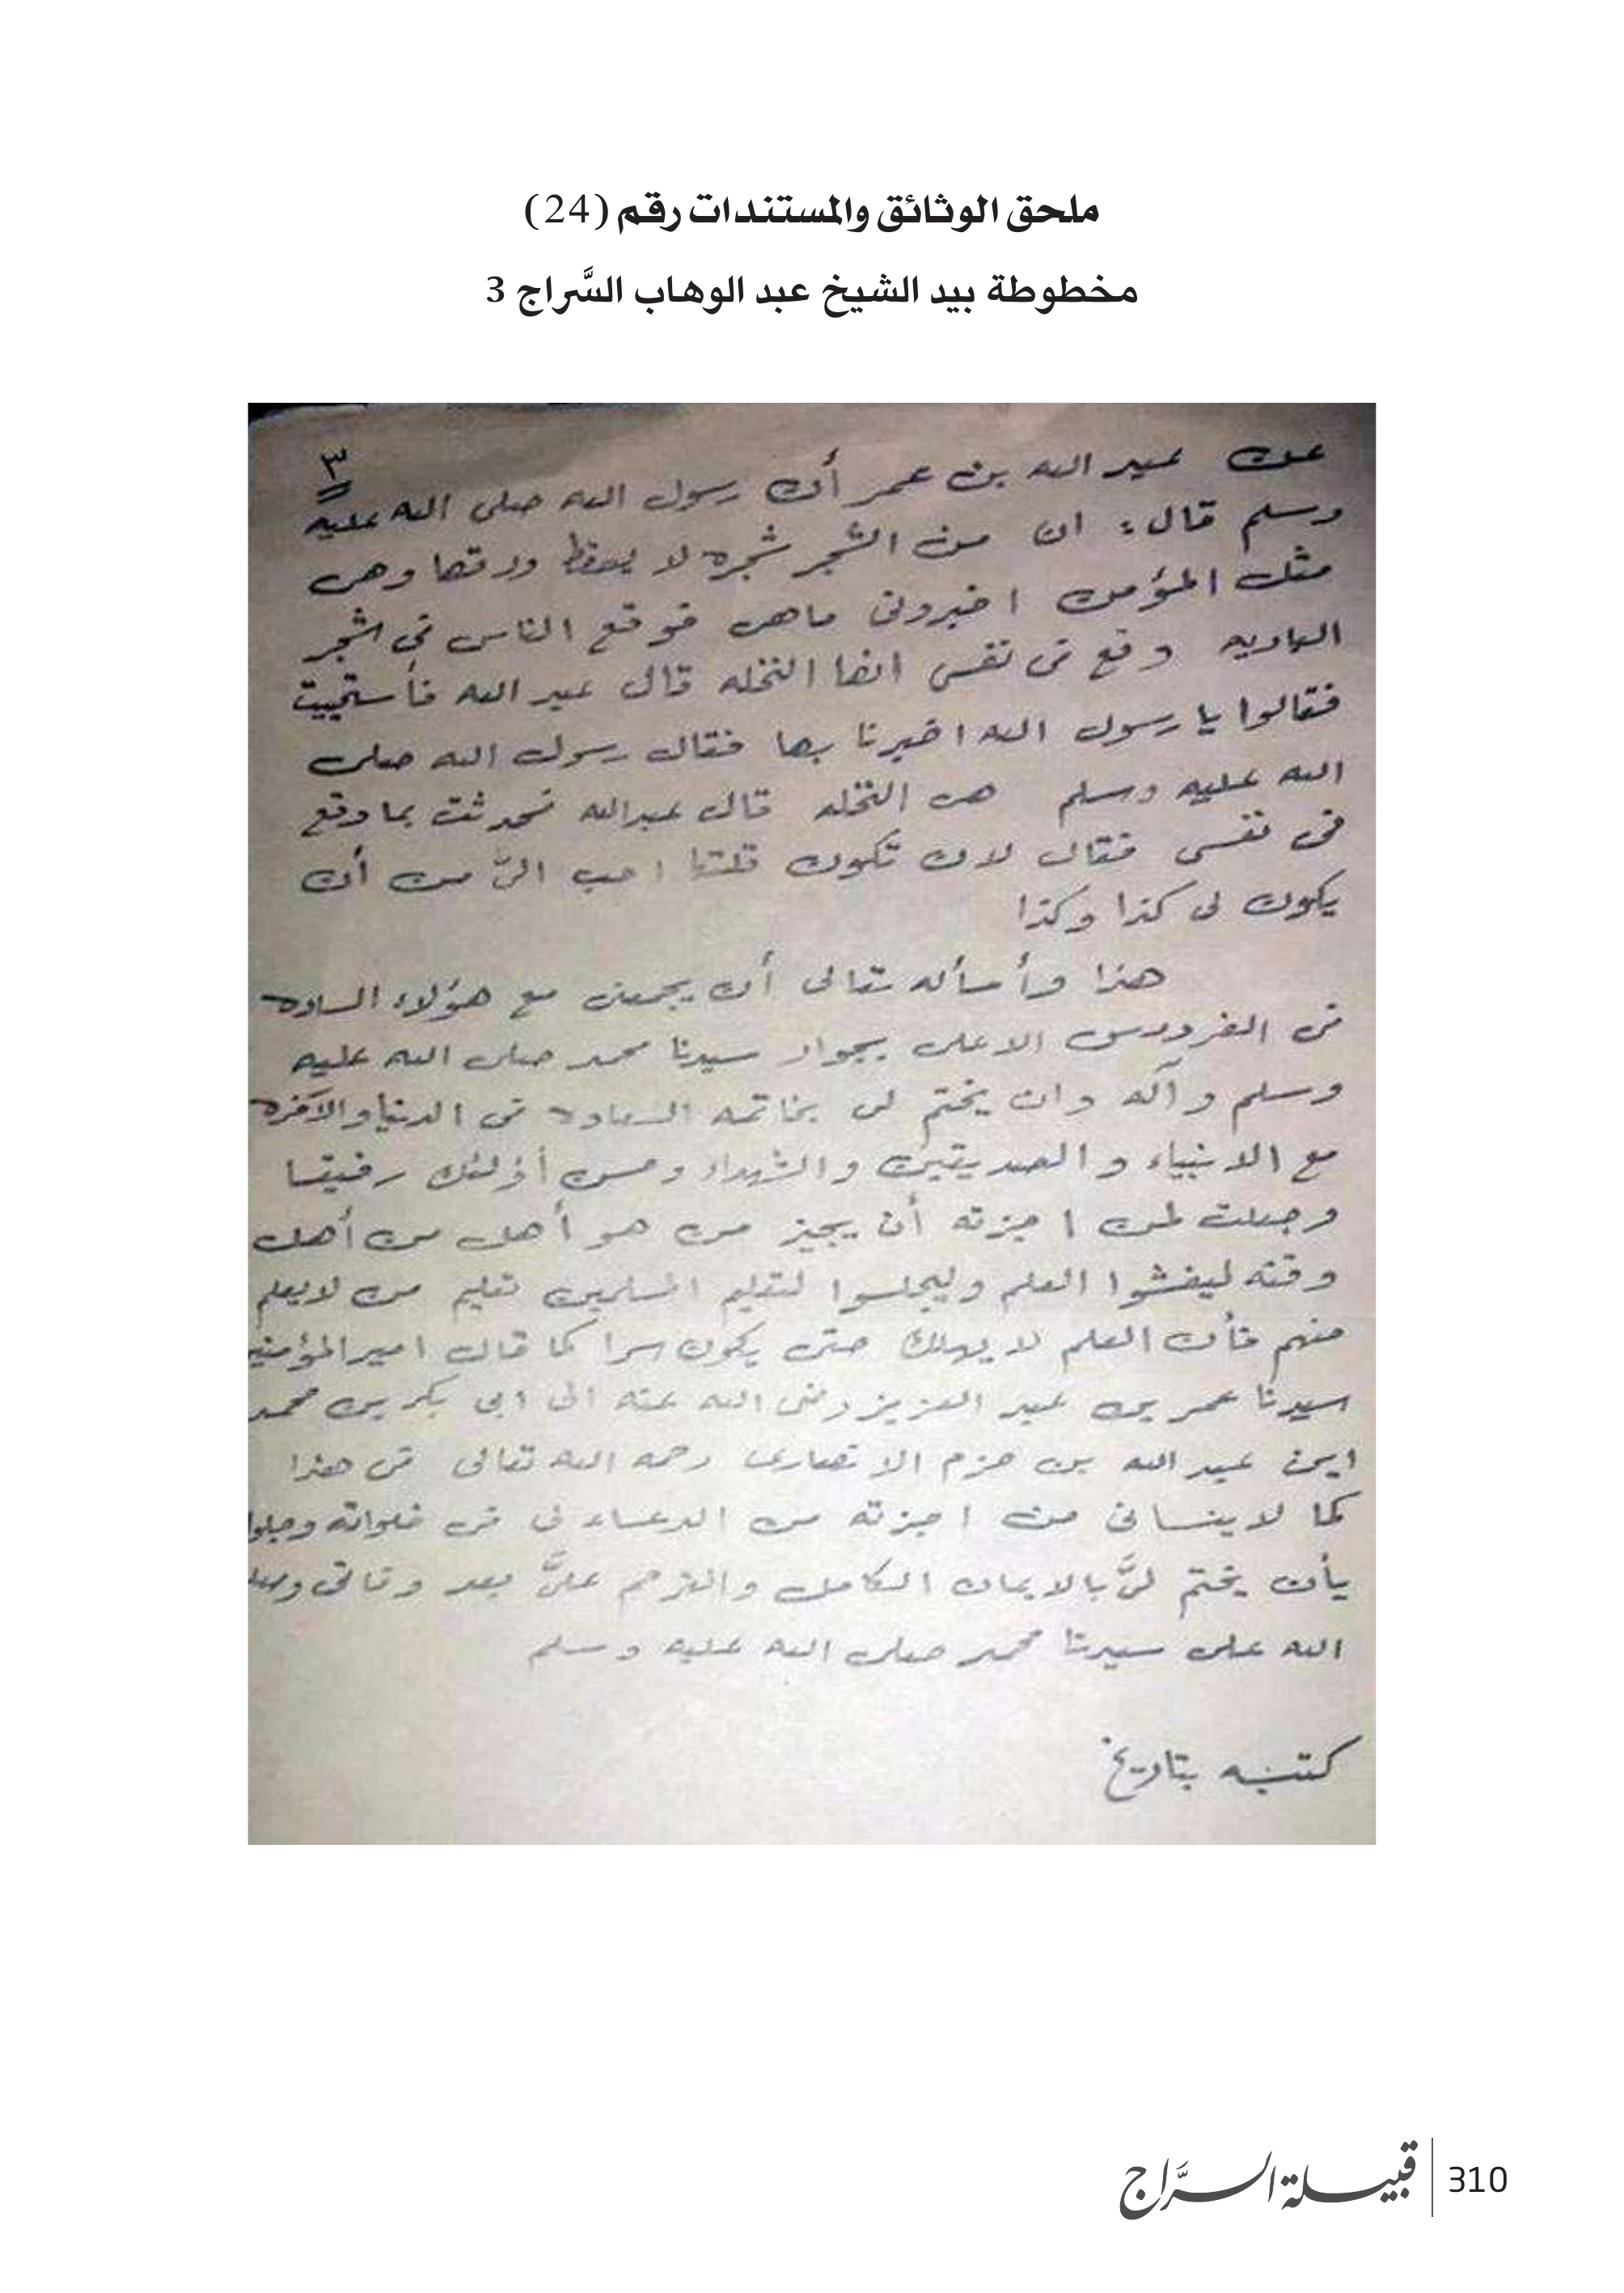 ملحق الوثائق والمستندات رقم (24)
مخطوطة بيد الشيخ عبد الوهاب السَّراج 3
٣
عن عبد الله بن عمر أن رسول الله صلى الله عليه
وسلم قال: ان من الشجر شجره لا يسقط ورقها وهى
مثل المؤمن اخبرونى ماهى فوقع الناس فى شجر
الباديه وقع فى نفسى انها النخله قال عبد الله فأستحييت
فقالوا يا رسول الله اخبرنا بها فقال رسول الله صلى
الله عليه وسلم هى النخله قال عبدالله فحدثت بما وقع
فى نفسى فقال لان تكون قلتها احب الىَّ من أن
يكون لى كذا وكذا
هذا وأسأله تعالى أن يجمعنى مع هؤلاء الساده
فى الفردوس الاعلى بجوار سيدنا محمد صلى الله عليه
وسلم وآله وان يختم لى بخاتمه السعاده فى الدنيا والآخره
مع الانبياء والصديقين والشهداء وحسن أؤلئك رفيقا
وجعلت لمن اجزته أن يجيز من هو أهل من أهل
وقته ليفشوا العلم وليجلسوا لتعليم المسلمين تعليم من لايعلم
منهم فأن العلم لا يهلك حتى يكون سرا كما قال امير المؤمنين
سيدنا عمر بن عبد العزيز رضى الله عنه الى ابى بكر بن محمد
ابن عبد الله بن حزم الانصارى رحمه الله تعالى فى هذا
كما لاينسانى من اجزته من الدعاء لى فى خلواته وجلوا
بأن يختم لىَّ بالايمان الكامل والترحم علىَّ بعد وفاتى وصلى
الله على سيدنا محمد صلى الله عليه وسلم
كتبه بتاريخ
قبيلة السرَّاج
310